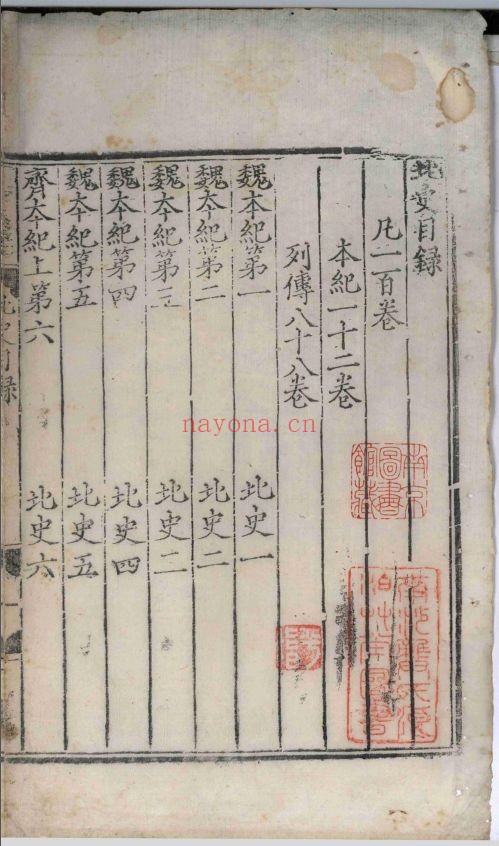 北史目録
凡一百卷
本紀一十二卷
列傳八十八卷
魏本紀第一 北史一
魏本紀第二 北史二
魏本紀第三 北史二
魏本紀第四 北史四
魏本紀第五 北史五
齊本紀上第六 北史六
北史目録
南京圖書館藏
nayona.cn